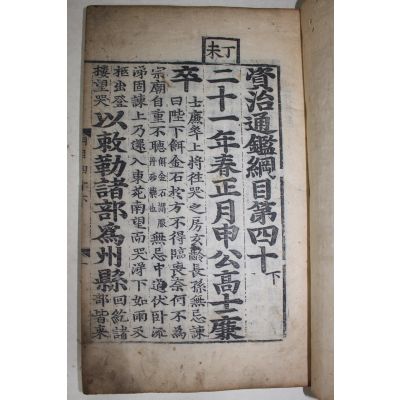 資治通鑑綱目第四十下
丁未
二十一年春正月申公高士廉
卒
士廉卒上將往哭之房玄齡長孫無忌諫
曰陛下餌金石於方不得臨喪奈何不為
宗廟自重不聽餌金石謂服丹砂藥也無忌中道伏臥流
涕固諫上乃還入東苑南望而哭涕下如雨及
柩出登
樓望哭
以敕勒諸部爲州縣
回紇諸
部皆來